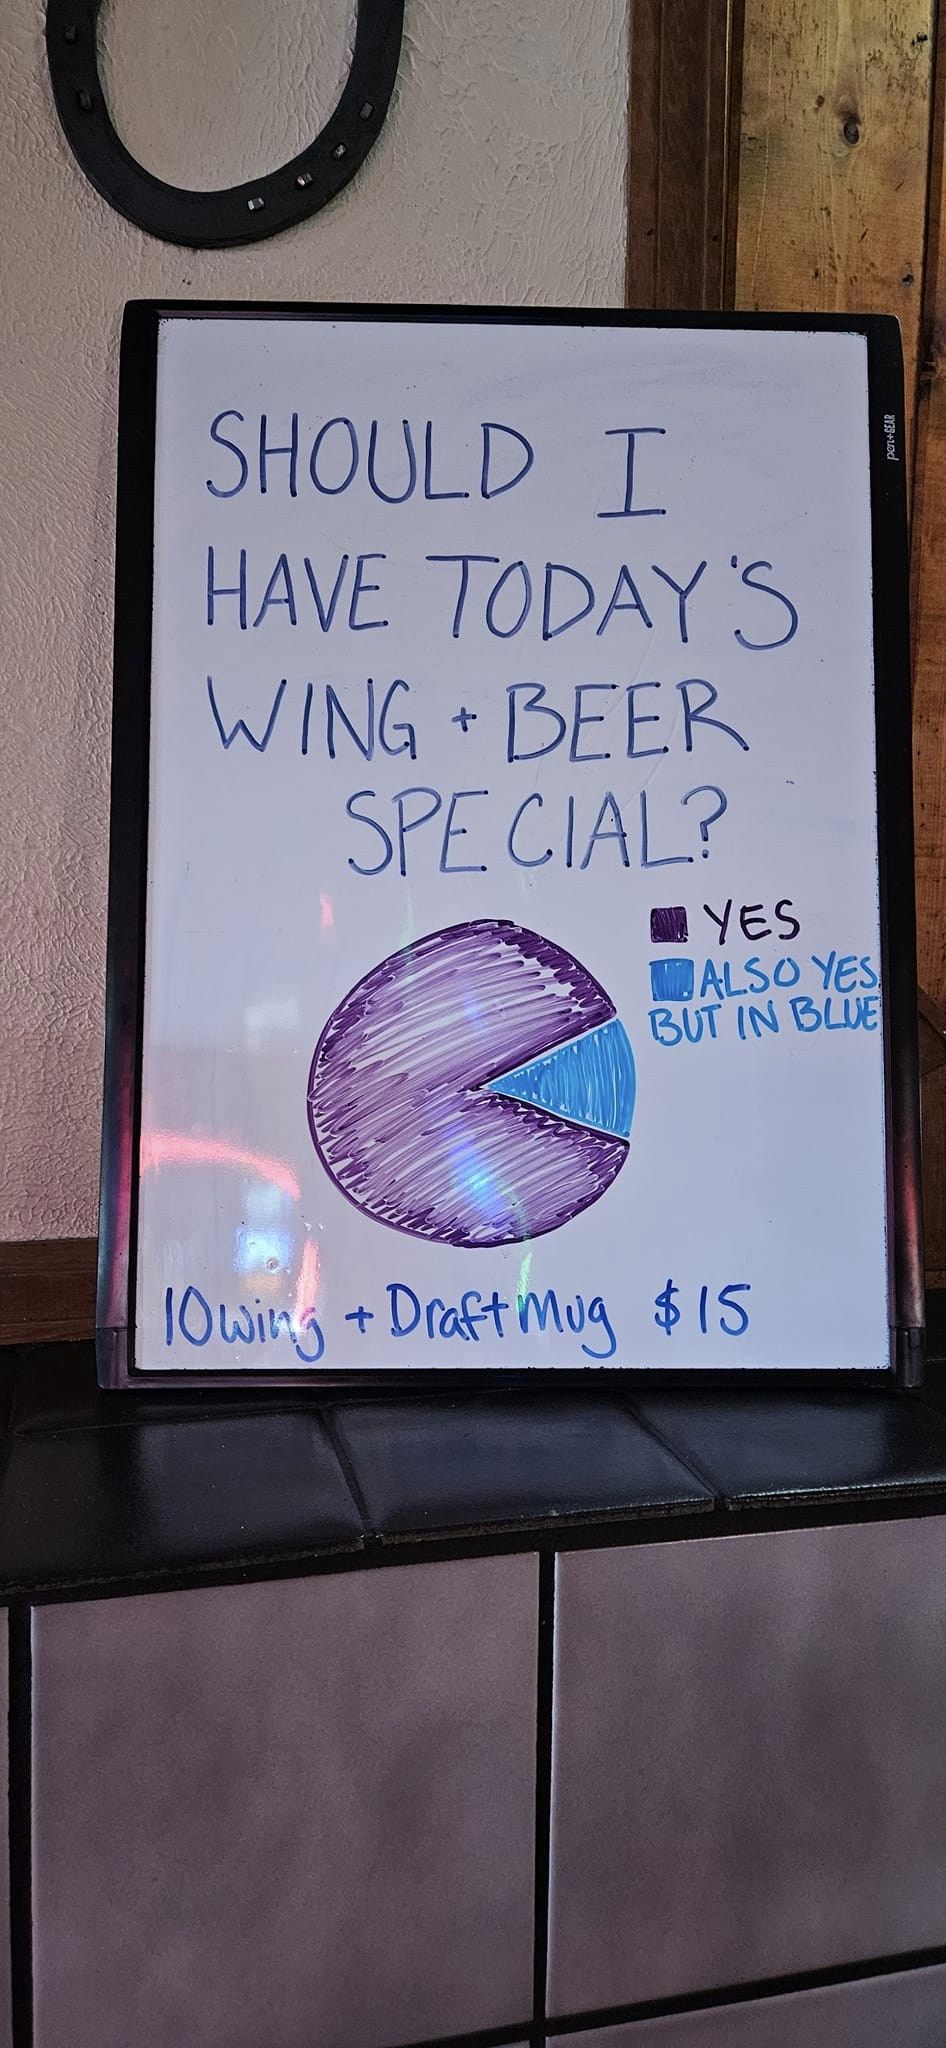 pen+GEAR
SHOULD I
HAVE TODAY'S
WING + BEER
SPECIAL?
YES
ALSO YES
BUT IN BLUE
10 wing + Draft Mug $15